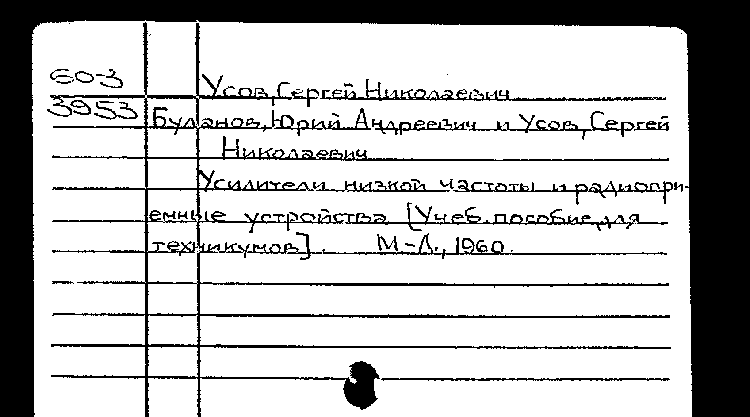 60-3
Усов, Сергей Николаевич
3953
Буланов, Юрий Андреевич и Усов, Сергей
Николаевич
Усилители низкой частоты и радиопри-
емные устройства [Учеб. пособие для
техникумов]. М.-Л., 1960.